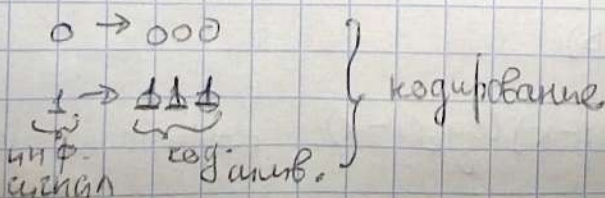 0 → 000
1 → 111 } кодирование.
инф. сигнал
код. симв.